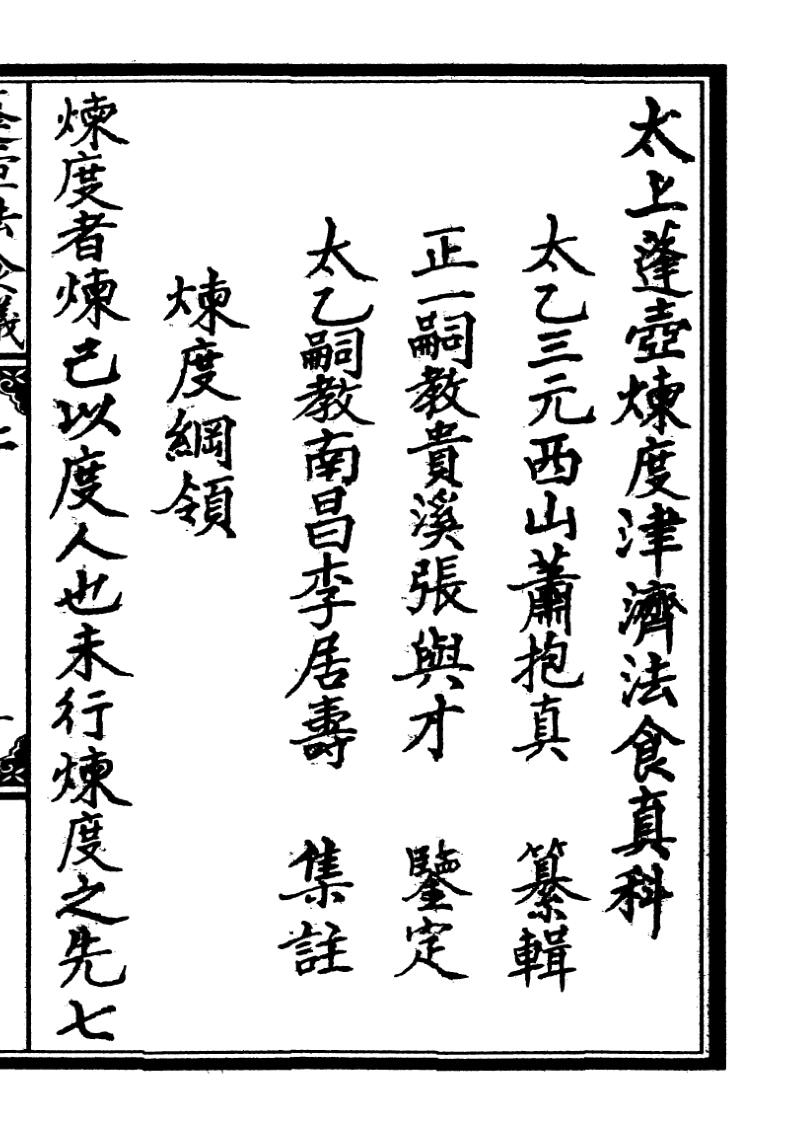 太上蓬壺煉度津濟法食真科
太乙三元西山蕭抱真　纂輯
正一嗣教貴溪張與才　鑒定
太乙嗣教南昌李居壽　集註
煉度綱領
煉度者煉己以度人也未行煉度之先七